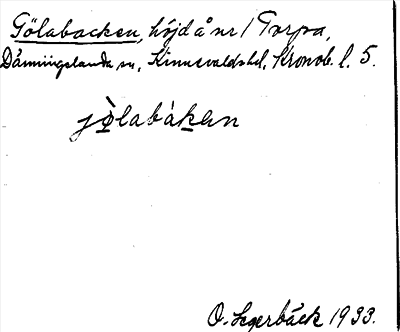 Gölabacken, höjd å nr 1 Torpa,
Dänningelanda sn, Kinnevaldshd, Kronob. l. 5.
jö̀labákan
O. Segerbäck 1933.